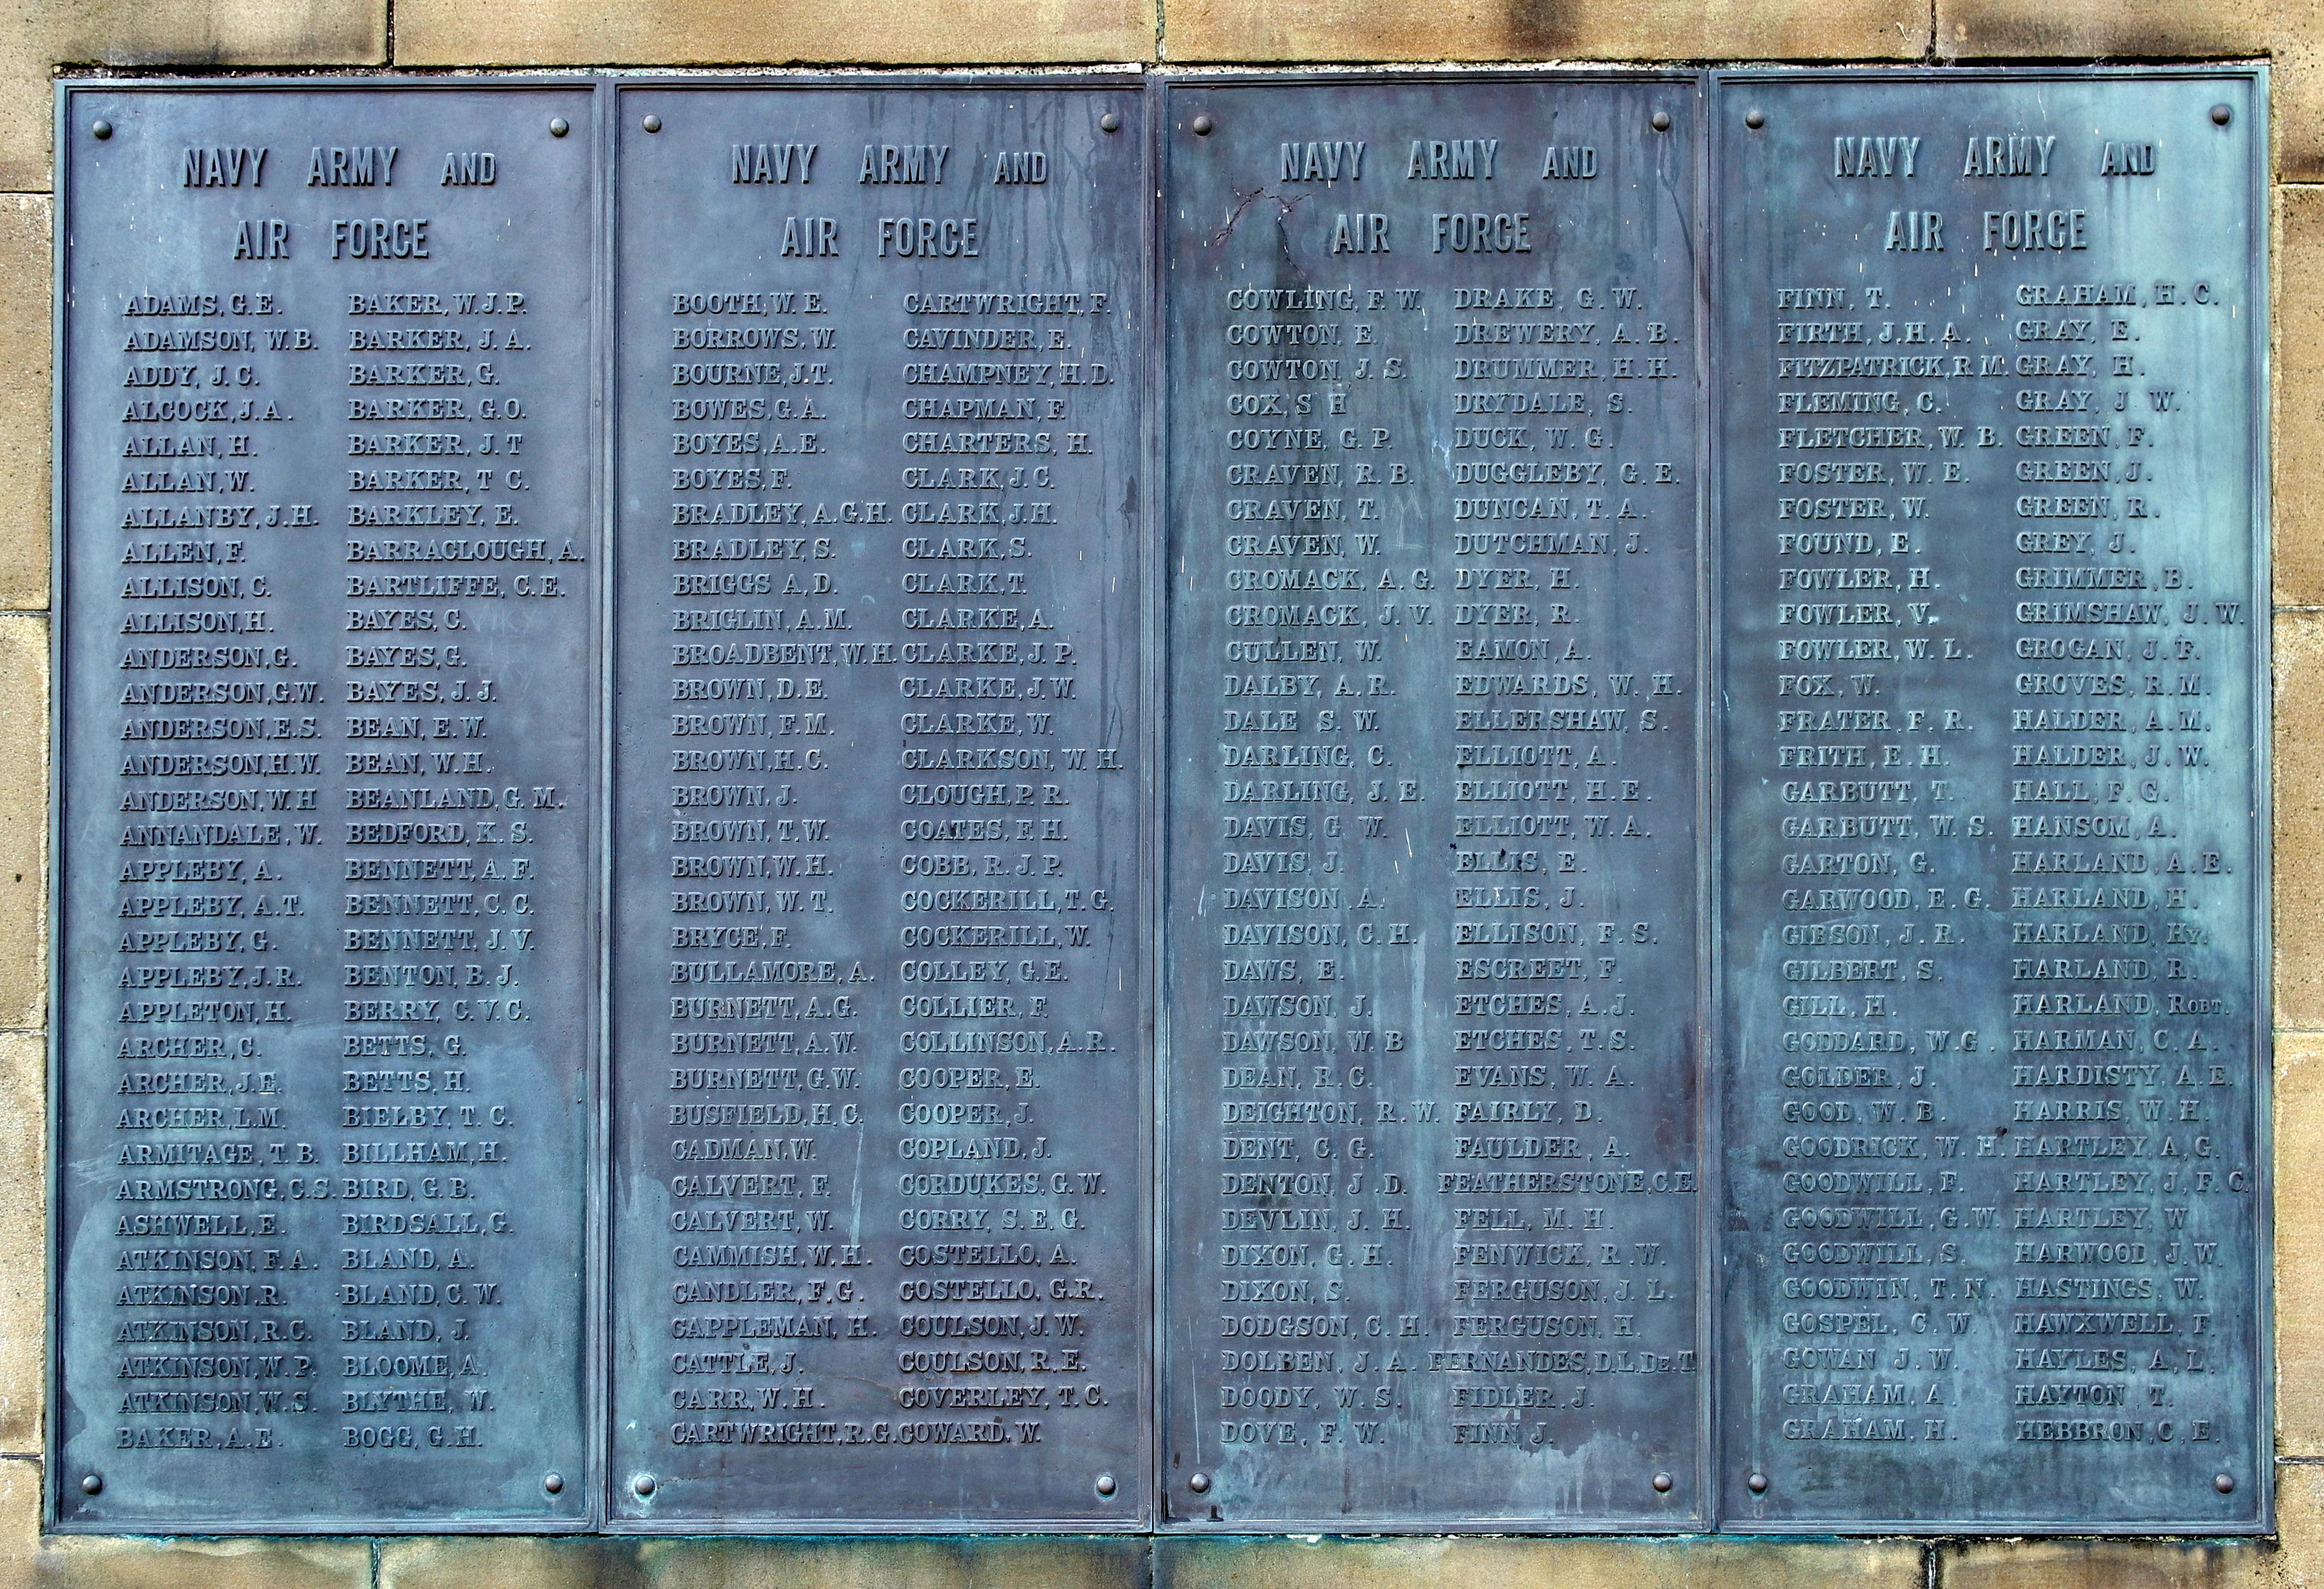 NAVY ARMY AND
AIR FORCE
ADAMS, G.E.
ADAMSON, W.B.
ADDY, J.C.
ALCOCK, J.A.
ALLAN, H.
ALLAN, W.
ALLANBY, J.H.
ALLEN, F.
ALLISON, C.
ALLISON, H.
ANDERSON, G.
ANDERSON, G.W.
ANDERSON, E.S.
ANDERSON, H.W.
ANDERSON, W.H
ANNANDALE, W.
APPLEBY, A.
APPLEBY, A.T.
APPLEBY, G.
APPLEBY, J.R.
APPLETON, H.
ARCHER, C.
ARCHER, J.E.
ARCHER, L.M.
ARMITAGE, T.B.
ARMSTRONG, C.S.
ASHWELL, E.
ATKINSON, F.A.
ATKINSON, R.
ATKINSON, R.C.
ATKINSON, W.P.
ATKINSON, W.S.
BAKER, A.E.
BAKER, W.J.P.
BARKER, J.A.
BARKER, G.
BARKER, G.O.
BARKER, J.T
BARKER, T C.
BARKLEY, E.
BARRACLOUGH, A.
BARTLIFFE, C.E.
BAYES, C.
BAYES, G.
BAYES, J.J.
BEAN, E.W.
BEAN, W.H.
BEANLAND, G.M.
BEDFORD, K.S.
BENNETT, A.F.
BENNETT, C.C.
BENNETT, J.V.
BENTON, B.J.
BERRY, C.V.C.
BETTS, G.
BETTS, H.
BIELBY, T.C.
BILLHAM, H.
BIRD, G.B.
BIRDSALL, G.
BLAND, A.
BLAND, C.W.
BLAND, J.
BLOOME, A.
BLYTHE, W.
BOGG, G.H.
NAVY ARMY AND
AIR FORCE
BOOTH, W.E.
BORROWS, W.
BOURNE, J.T.
BOWES, G.A.
BOYES, A.E.
BOYES, F.
BRADLEY, A.G.H.
BRADLEY, S.
BRIGGS A,D.
BRIGLIN, A.M.
BROADBENT, W.H.
BROWN, D.E.
BROWN, F.M.
BROWN, H.C.
BROWN, J.
BROWN, T.W.
BROWN, W.H.
BROWN, W.T.
BRYCE, F.
BULLAMORE, A.
BURNETT, A.G.
BURNETT, A.W.
BURNETT, G.W.
BUSFIELD, H.C.
CADMAN, W.
CALVERT, F.
CALVERT, W.
CAMMISH, W.H.
CANDLER, F.G.
CAPPLEMAN, H.
CATTLE, J.
CARR, W.H.
CARTWRIGHT, R.G.
CARTWRIGHT, F.
CAVINDER, E.
CHAMPNEY, H.D.
CHAPMAN, F.
CHARTERS, H.
CLARK, J.C.
CLARK, J.H.
CLARK, S.
CLARK, T.
CLARKE, A.
CLARKE, J.P.
CLARKE, J.W.
CLARKE, W.
CLARKSON, W.H.
CLOUGH, P.R.
COATES, F.H.
COBB, R.J.P.
COCKERILL, T.G.
COCKERILL, W.
COLLEY, G.E.
COLLIER, F.
COLLINSON, A.R.
COOPER, E.
COOPER, J.
COPLAND, J.
CORDUKES, G.W.
CORRY, S.E.G.
COSTELLO, A.
COSTELLO, G.R.
COULSON, J.W.
COULSON, R.E.
COVERLEY, T.C.
COWARD. W.
NAVY ARMY AND
AIR FORCE
COWLING, F.W.
COWTON, E.
COWTON, J.S.
COX, S H
COYNE, G.P.
CRAVEN, R.B.
CRAVEN, T.
CRAVEN, W.
CROMACK, A.G.
CROMACK, J.V.
CULLEN, W.
DALBY, A.R.
DALE S.W.
DARLING, C.
DARLING, J.E.
DAVIS, G W.
DAVIS, J.
DAVISON A.
DAVISON, C.H.
DAWS, E.
DAWSON, J.
DAWSON, W.B
DEAN, R.C.
DEIGHTON, R.W.
DENT, C.G.
DENTON, J.D.
DEVLIN, J.H.
DIXON, G.H.
DIXON, S.
DODGSON, C.H.
DOLBEN, J.A.
DOODY, W.S.
DOVE, F.W.
DRAKE, G.W.
DREWERY, A.B.
DRUMMER, H.H.
DRYDALE, S.
DUCK, W.G.
DUGGLEBY, G.E.
DUNCAN, T.A.
DUTCHMAN, J.
DYER, H.
DYER, R.
EAMON, A.
EDWARDS, W.H.
ELLERSHAW, S.
ELLIOTT, A.
ELLIOTT, H.E.
ELLIOTT, W.A.
ELLIS, E.
ELLIS, J.
ELLISON, F.S.
ESCREET, F.
ETCHES, A.J.
ETCHES, T.S.
EVANS, W.A.
FAIRLY, D.
FAULDER, A.
FEATHERSTONE, C.E.
FELL, M.H.
FENWICK, R.W.
FERGUSON, J.L.
FERGUSON, H.
FERNANDES, D.L.DE.T
FIDLER, J.
FINN, J.
NAVY ARMY AND
AIR FORCE
FINN, T.
FIRTH, J.H.A.
FITZPATRICK, R M.
FLEMING, C.
FLETCHER, W.B.
FOSTER, W.E.
FOSTER, W.
FOUND, E.
FOWLER, H.
FOWLER, V.
FOWLER, W.L.
FOX, W.
FRATER, F.R.
FRITH, E.H.
GARBUTT, T.
GARBUTT, W.S.
GARTON, G.
GARWOOD, E.G.
GIBSON, J.R.
GILBERT, S.
GILL, H.
GODDARD, W.G.
GOLDER, J.
GOOD, W.B.
GOODRICK, W.H.
GOODWILL, F.
GOODWILL, G.W.
GOODWILL, S.
GOODWIN, T.N.
GOSPEL, C.W.
GOWAN J.W.
GRAHAM, A.
GRAHAM, H.
GRAHAM, H.C.
GRAY, E.
GRAY, H.
GRAY, J W.
GREEN, F.
GREEN, J.
GREEN, R.
GREY, J.
GRIMMER, B.
GRIMSHAW, J.W.
GROGAN, J.F.
GROVES, R.M.
HALDER, A.M.
HALDER, J.W.
HALL, F.G.
HANSOM, A.
HARLAND, A.E.
HARLAND, H.
HARLAND, HY.
HARLAND, R.
HARLAND, ROBT.
HARMAN, C.A.
HARDISTY, A.E.
HARRIS, W.H.
HARTLEY, A,G.
HARTLEY, J,F.C.
HARTLEY, W
HARWOOD, J.W.
HASTINGS, W.
HAWXWELL, F.
HAYLES, A,L.
HAYTON, T.
HEBBRON, C,E.